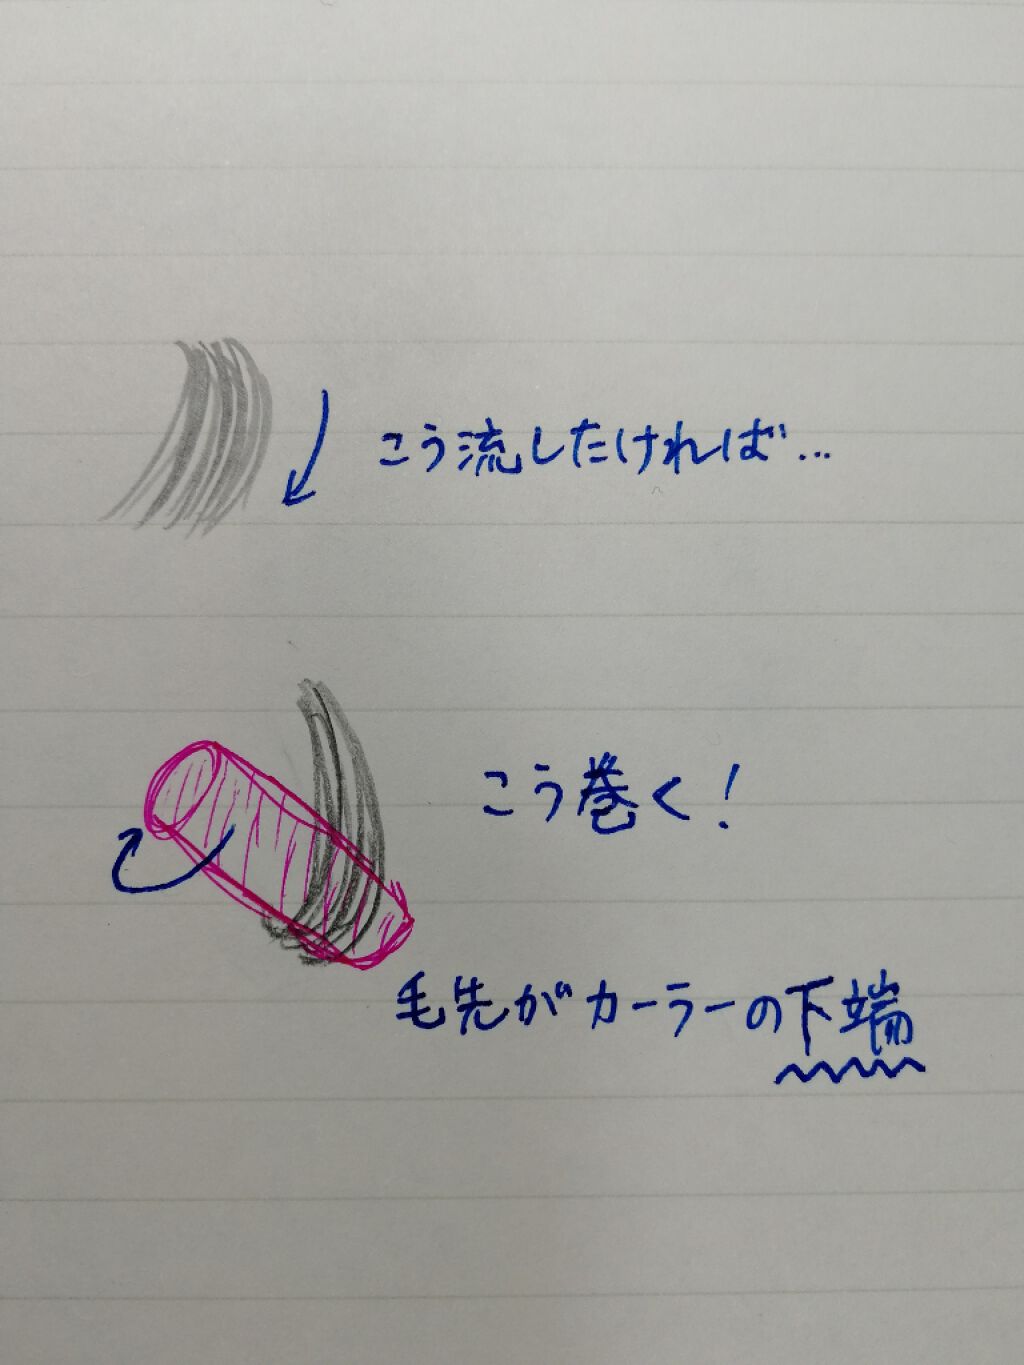 こう流したければ…
こう巻く！
毛先がカーラーの下端